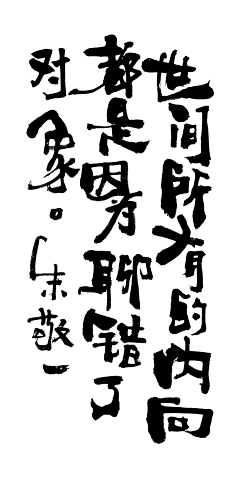 世间所有的内向
都是因为聊错了
对象。朱敬一